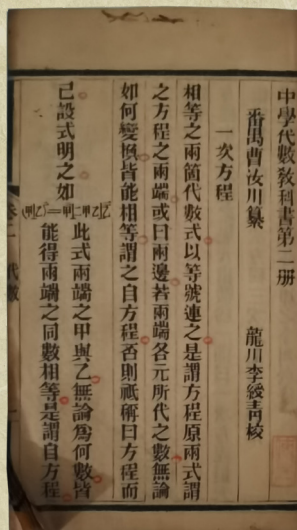 中學代數教科書第二册
番禺曹汝川纂
龍川李綬青校
一次方程
相等之兩箇代數式以等號連之是謂方程原兩式謂
之方程之兩端或曰兩邊若兩端各元所代之數無論
如何變換皆能相等謂之自方程否則祇稱曰方程而
已設式明之如
此式兩端之甲與乙無論爲何數皆
能得兩端之同數相等是謂自方程
代數